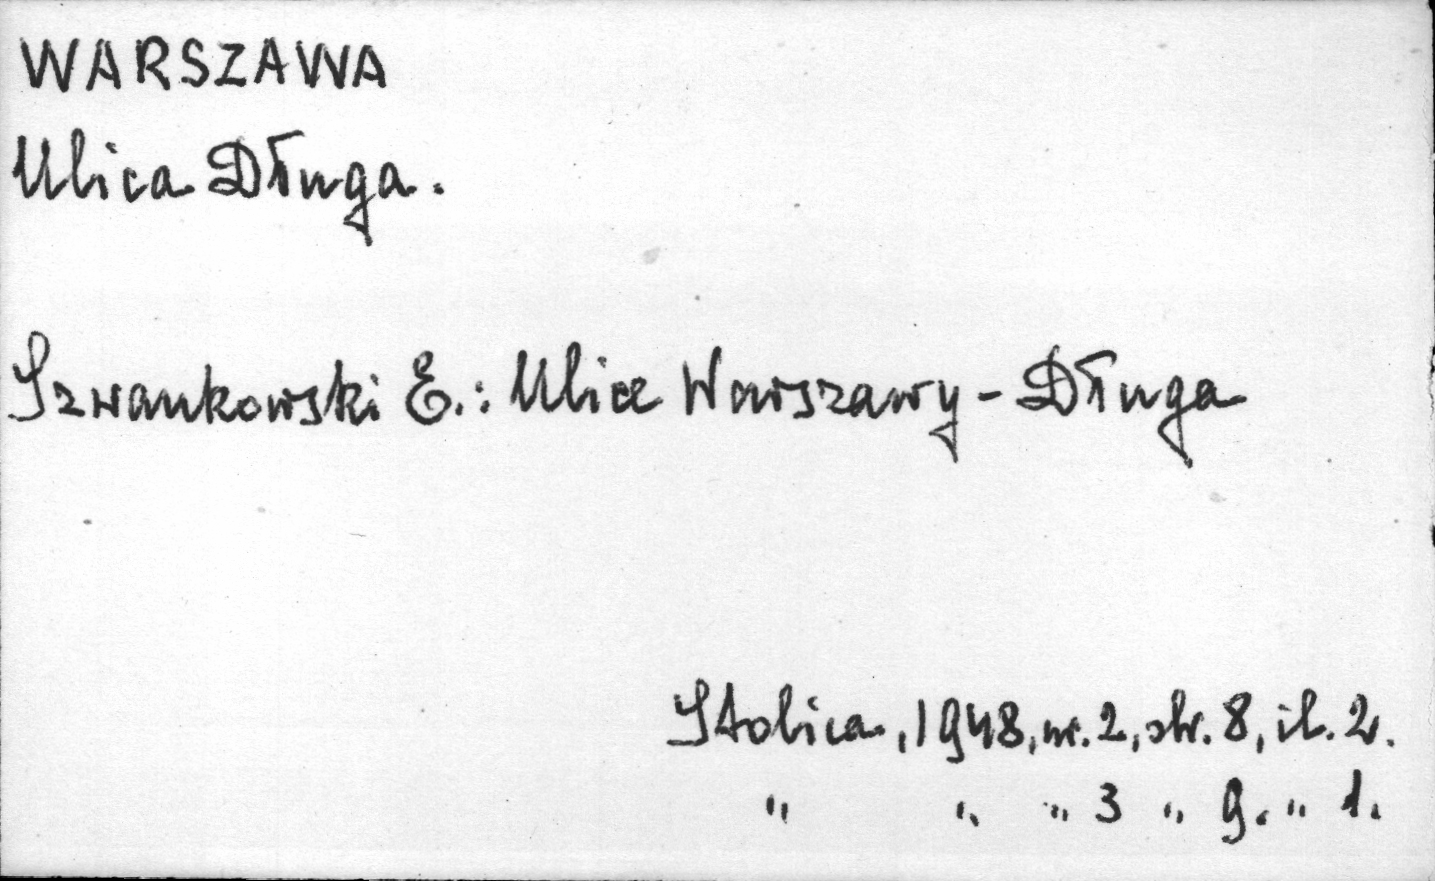 WARSZAWA
Ulica Długa.
Szwankowski E.: Ulice Warszawy - Długa
Stolica, 1948, nr. 2, str. 8, il. 2.
" " " 3 " 9. " 1.